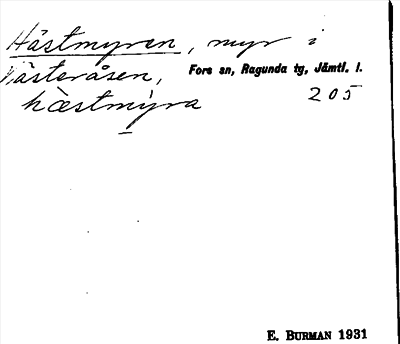 Hästmyren, myr i
Västeråsen, Fors sn, Ragunda tg, Jämtl. l.
hæstmỳra 205
E. BURMAN 1931